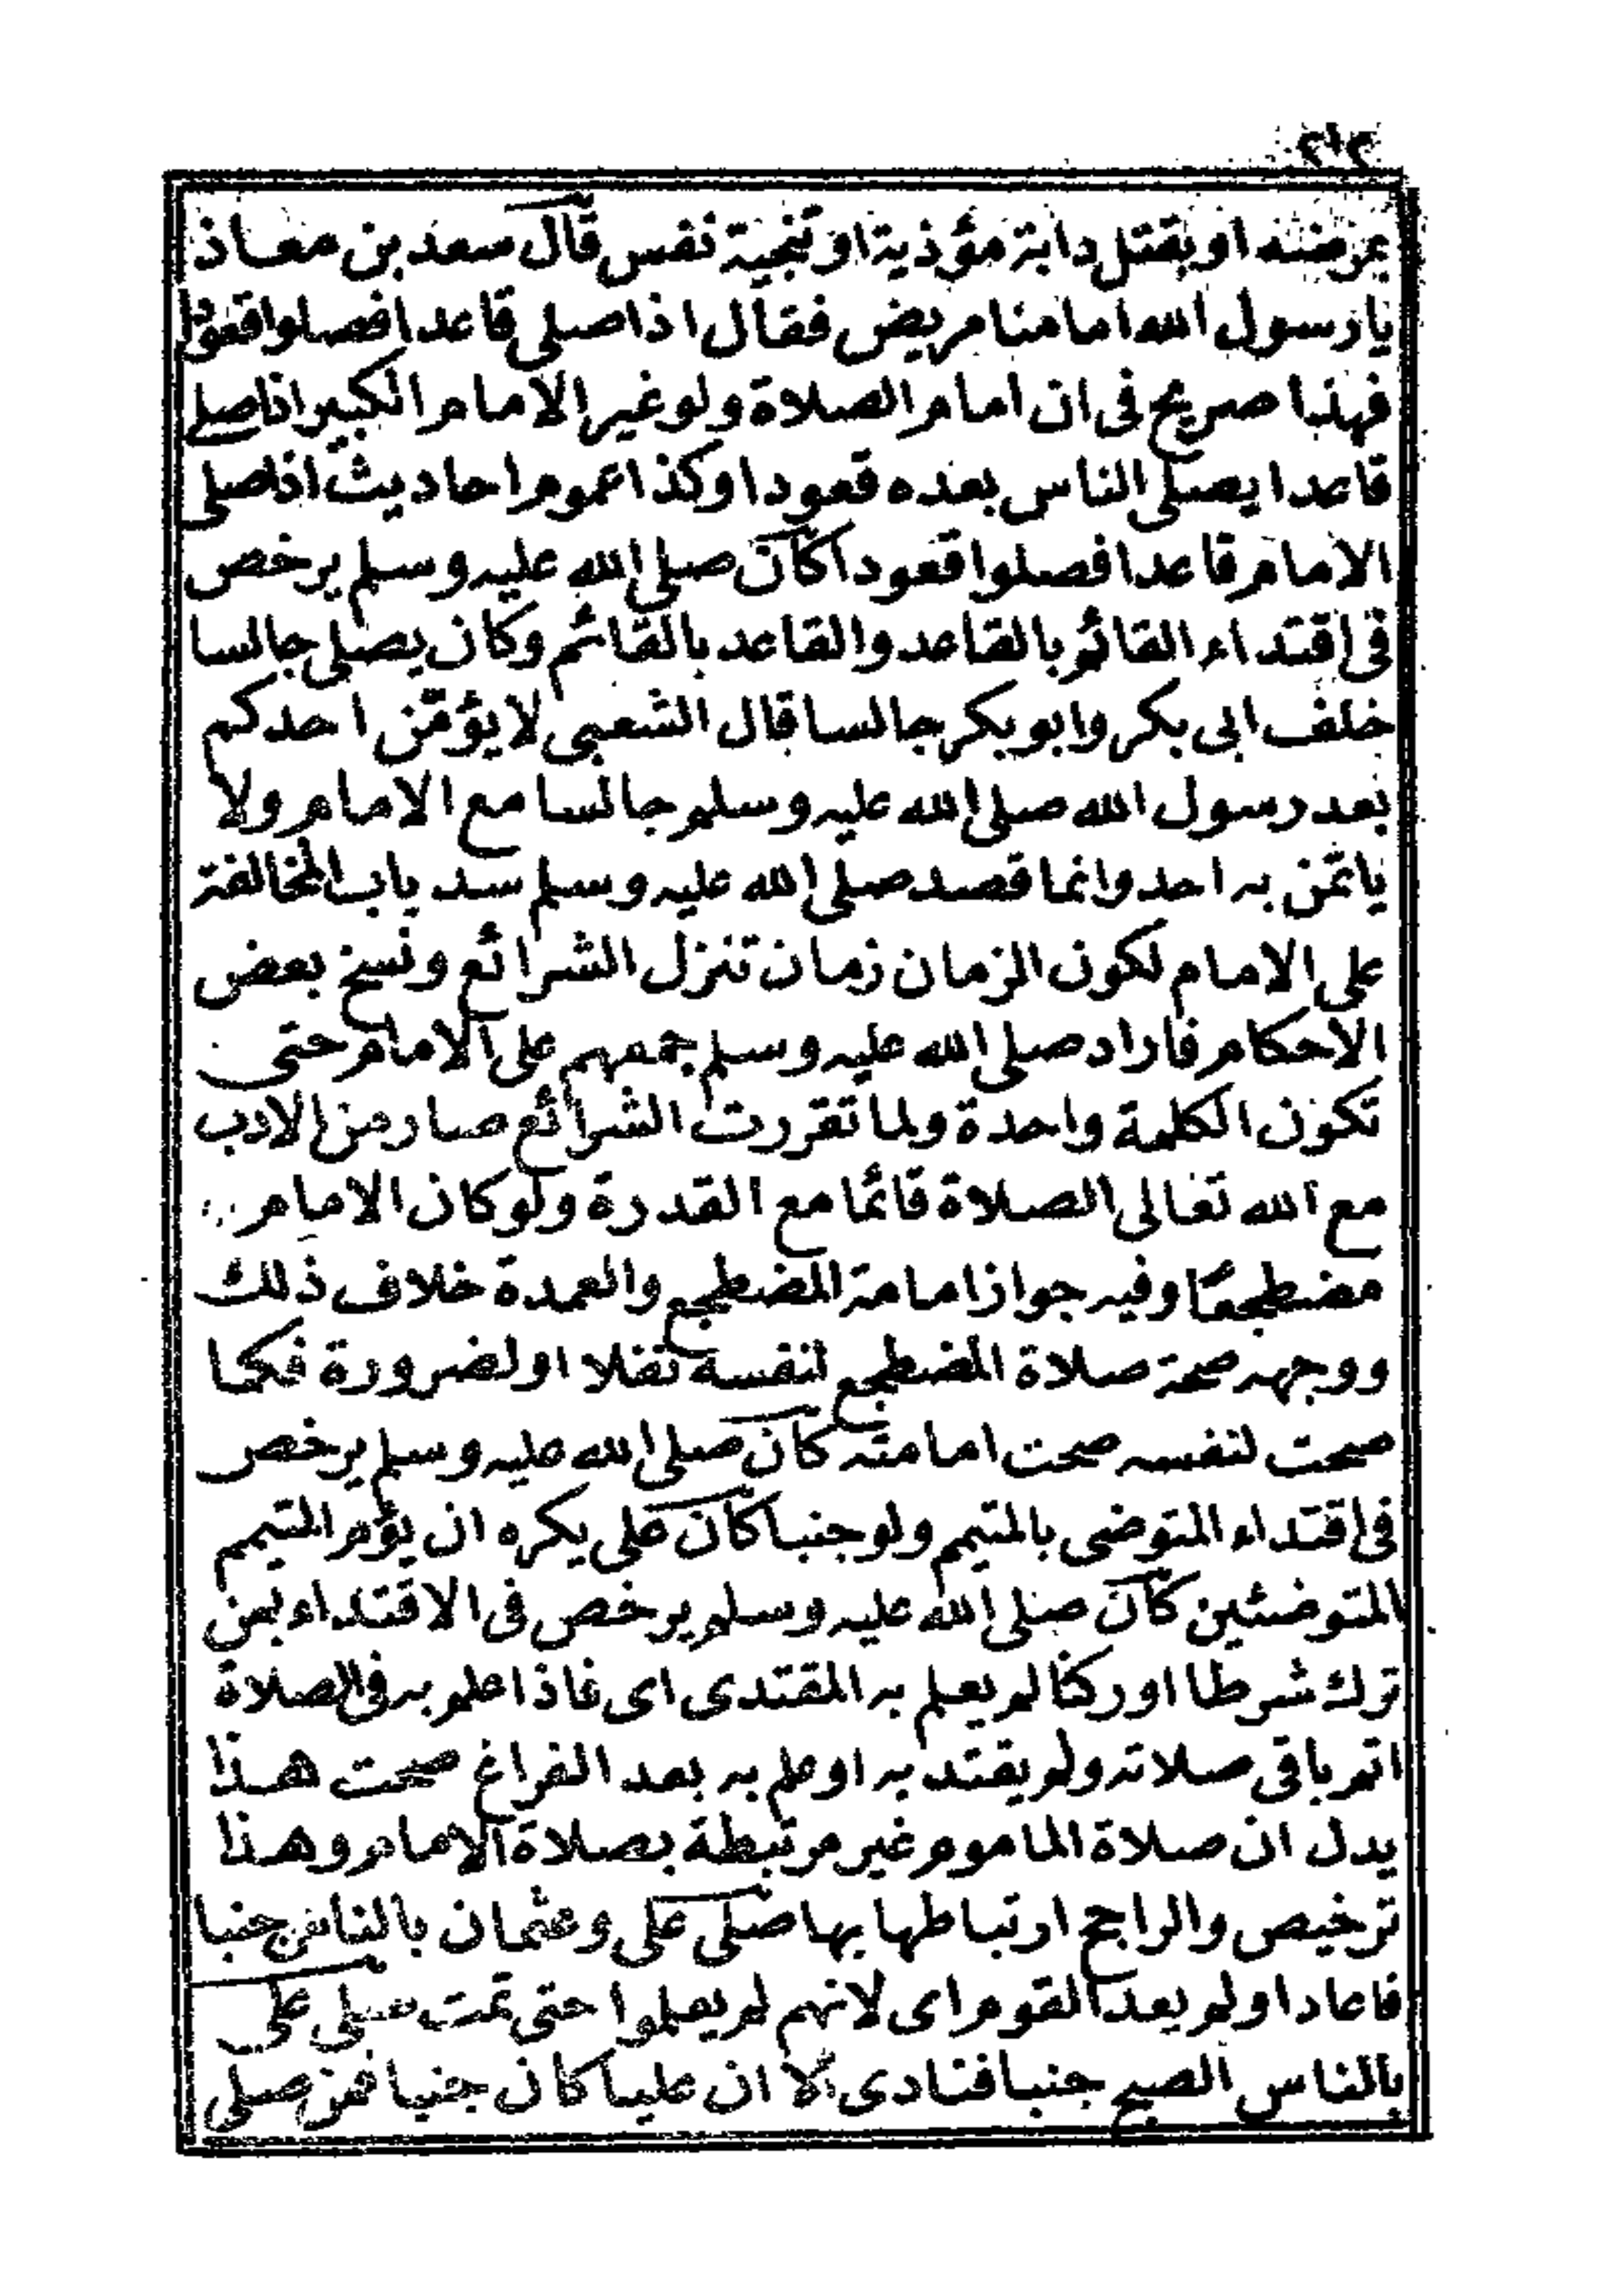 بمرضه او بقتل دابة مؤذية او تنجية نفس قال سعد بن معاذ
يا رسول الله امامنا مريض فقال اذا صلى قاعدا فصلوا قعودا
فهذا صريح فى ان امام الصلاة ولو غير الامام الكبير اذا صلى
قاعدا يصلى الناس بعده قعودا وكذا عموم احاديث اذا صلى
الامام قاعدا فصلوا قعودا كان صلى الله عليه وسلم يرخص
فى اقتداء القائم بالقاعد والقاعد بالقائم وكان يصلى جالسا
خلف ابى بكر وابو بكر جالسا قال الشعبى لا يؤمّن احدكم
بعد رسول الله صلى الله عليه وسلم جالسا مع الامام ولا
ياتمن به احد وانما قصد صلى الله عليه وسلم سد باب المخالفة
على الامام لكون الزمان زمان تنزل الشرائع ونسخ بعض
الاحكام فاراد صلى الله عليه وسلم جمعهم على الامام حتى
تكون الكلمة واحدة ولما تقررت الشرائع صار من الادب
مع الله تعالى الصلاة قائما مع القدرة ولو كان الامام
مضطجعًا وفيه جواز امامة المضطجع والعمدة خلاف ذلك
ووجهه صحة صلاة المضطجع لنفسه نفلا او لضرورة فكما
صحت لنفسه صحت امامته كان صلى الله عليه وسلم يرخص
فى اقتداء المتوضى بالمتيمم ولو جنبا كان على يكره ان يؤم المتيمم
المتوضئين كان صلى الله عليه وسلم يرخص فى الاقتداء بمن
ترك شرطا او ركنا لم يعلم به المقتدى اى فاذا علم به فى الصلاة
اتم باقى صلاته ولم يقتد به او علم به بعد الفراغ صحت هذا
يدل ان صلاة الماموم غير مرتبطة بصلاة الامام وهذا
ترخيص والراجح ارتباطها بها صلى على وعثمان بالناس جنبا
فاعادا ولم يعد القوم اى لانهم لم يعلموا حتى تمت صلى على
بالناس الصبح جنبا فنادى الا ان عليا كان جنبا فمن صلى